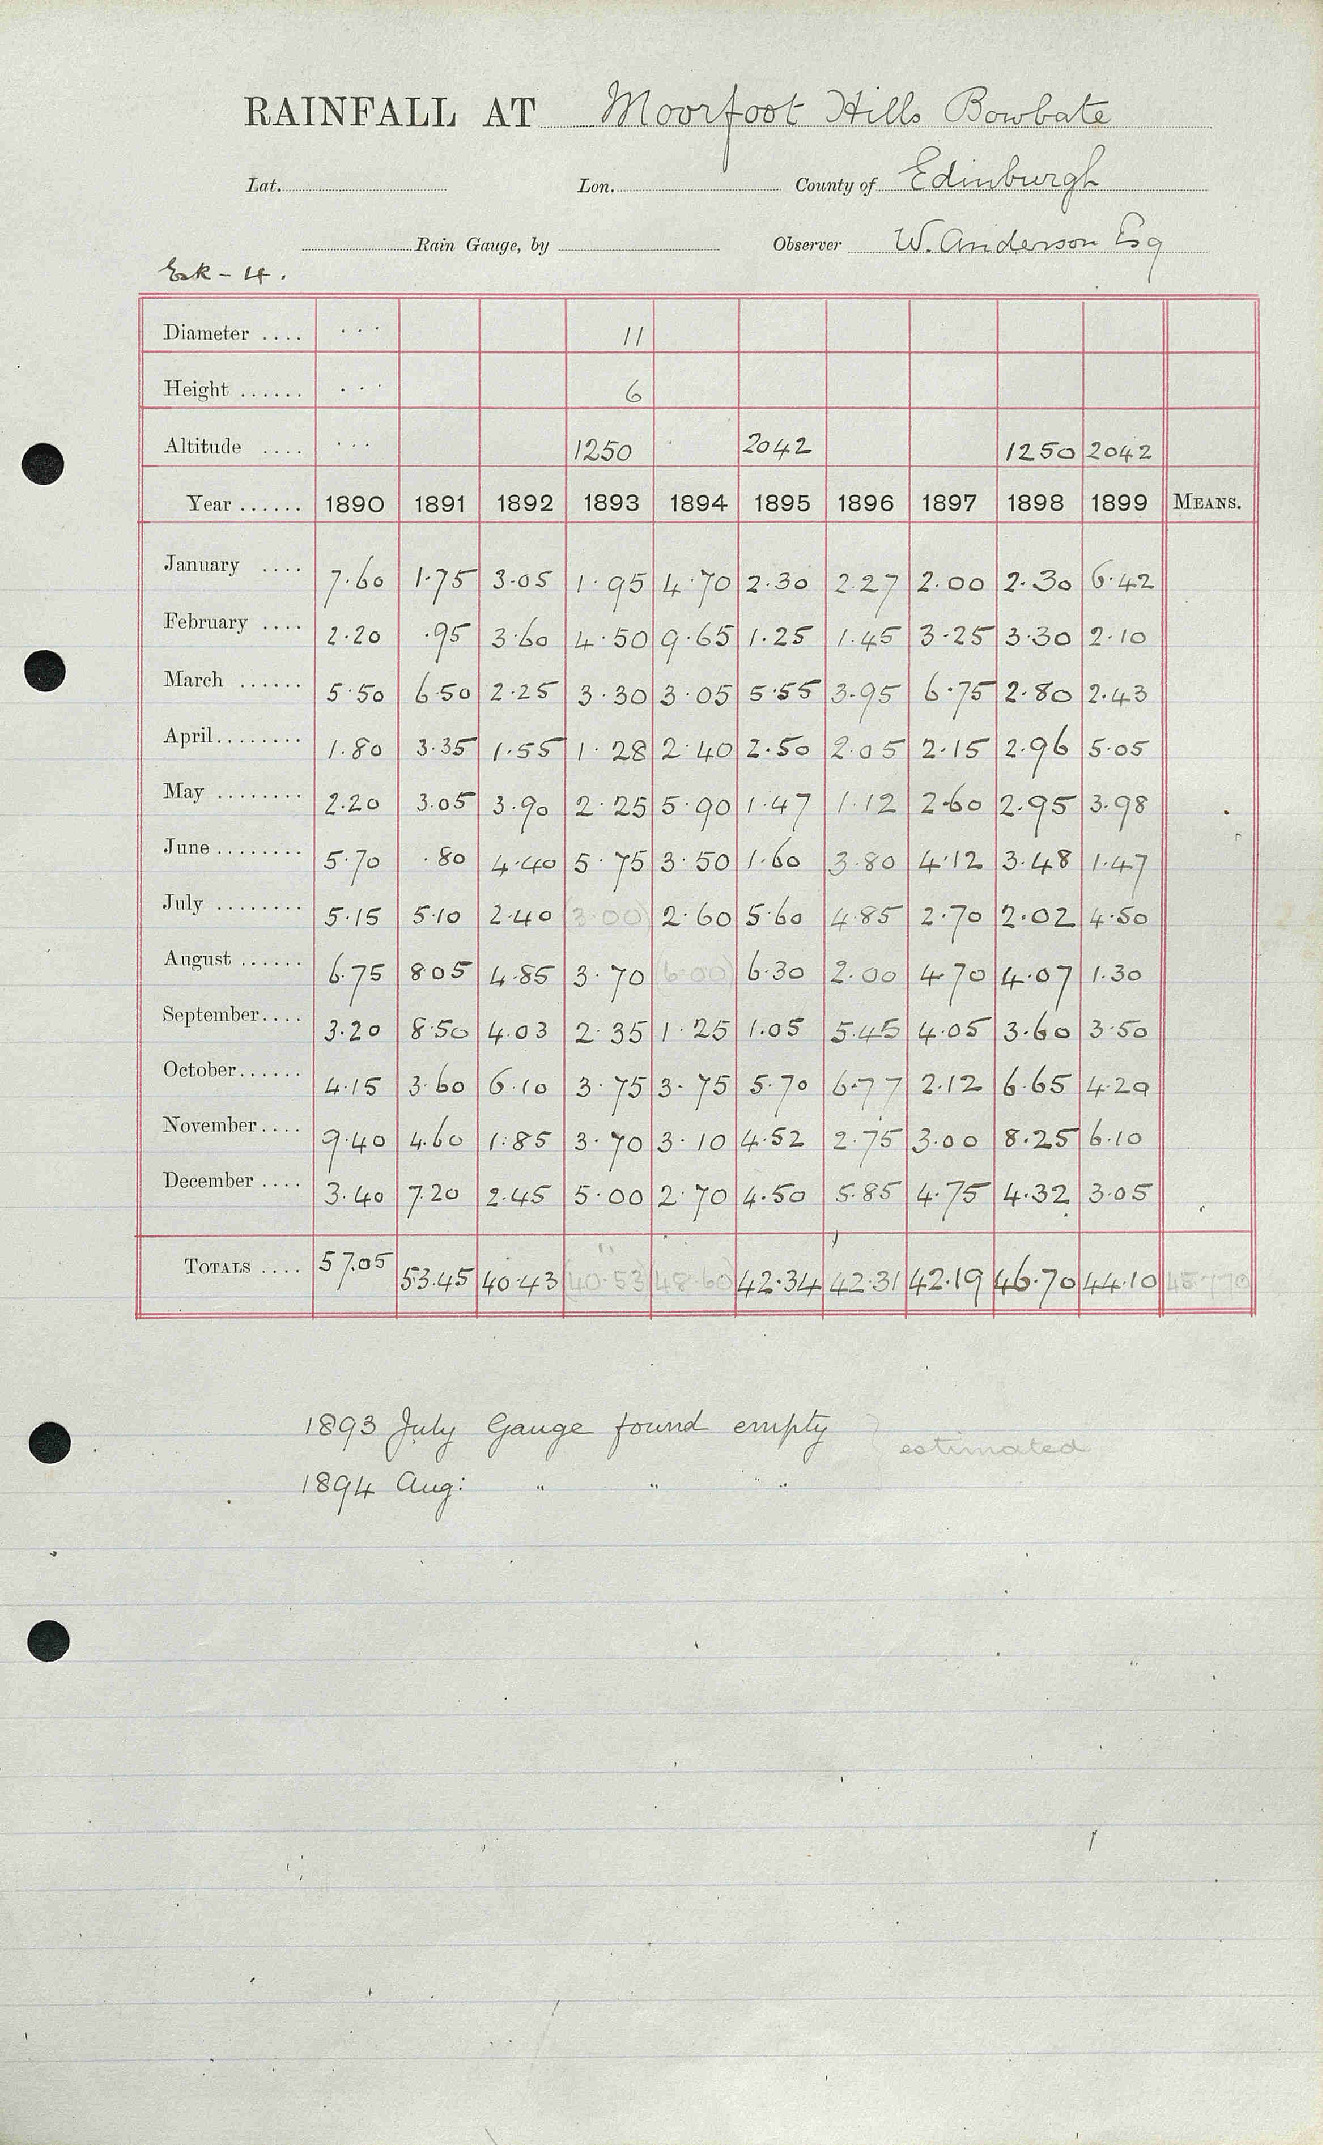 RAINFALL AT Moorfoot Hills Bowbate
Lat. Lon. County of Edinburgh
Rain Gauge, by Observer W. Anderson Esq
Esk - 4.
Diameter .... ... 11
Height ...... ... 6
Altitude .... ... 1250 2042 1250 2042
Year ...... 1890 1891 1892 1893 1894 1895 1896 1897 1898 1899 MEANS.
January .... 7.60 1.75 3.05 1.95 4.70 2.30 2.27 2.00 2.30 6.42
February .... 2.20 .95 3.60 4.50 9.65 1.25 1.45 3.25 3.30 2.10
March ...... 5.50 6.50 2.25 3.30 3.05 5.55 3.95 6.75 2.80 2.43
April........ 1.80 3.35 1.55 1.28 2.40 2.50 2.05 2.15 2.96 5.05
May ........ 2.20 3.05 3.90 2.25 5.90 1.47 1.12 2.60 2.95 3.98
June ........ 5.70 .80 4.40 5.75 3.50 1.60 3.80 4.12 3.48 1.47
July ........ 5.15 5.10 2.40 (3.00) 2.60 5.60 4.85 2.70 2.02 4.50
August ...... 6.75 8.05 4.85 3.70 (6.00) 6.30 2.00 4.70 4.07 1.30
September.... 3.20 8.50 4.03 2.35 1.25 1.05 5.45 4.05 3.60 3.50
October...... 4.15 3.60 6.10 3.75 3.75 5.70 6.77 2.12 6.65 4.20
November.... 9.40 4.60 1.85 3.70 3.10 4.52 2.75 3.00 8.25 6.10
December .... 3.40 7.20 2.45 5.00 2.70 4.50 5.85 4.75 4.32 3.05
TOTALS .... 57.05 53.45 40.43 (40.53) (48.60) 42.34 42.31 42.19 46.70 44.10
1893 July Gauge found empty } estimated
1894 Aug: " " "